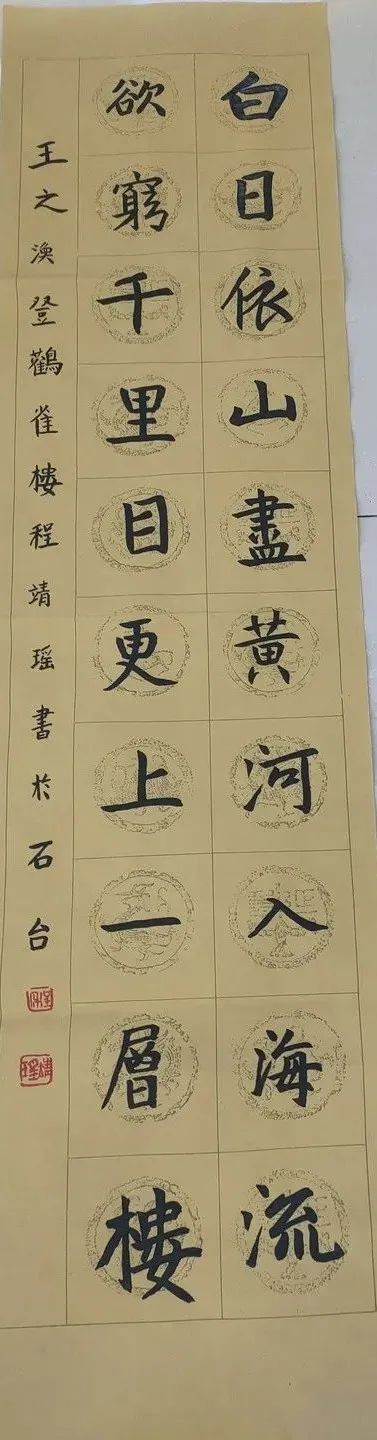 白日依山盡黃河入海流
欲窮千里目更上一層樓
王之渙登鸛雀樓程靖瑶書於石台